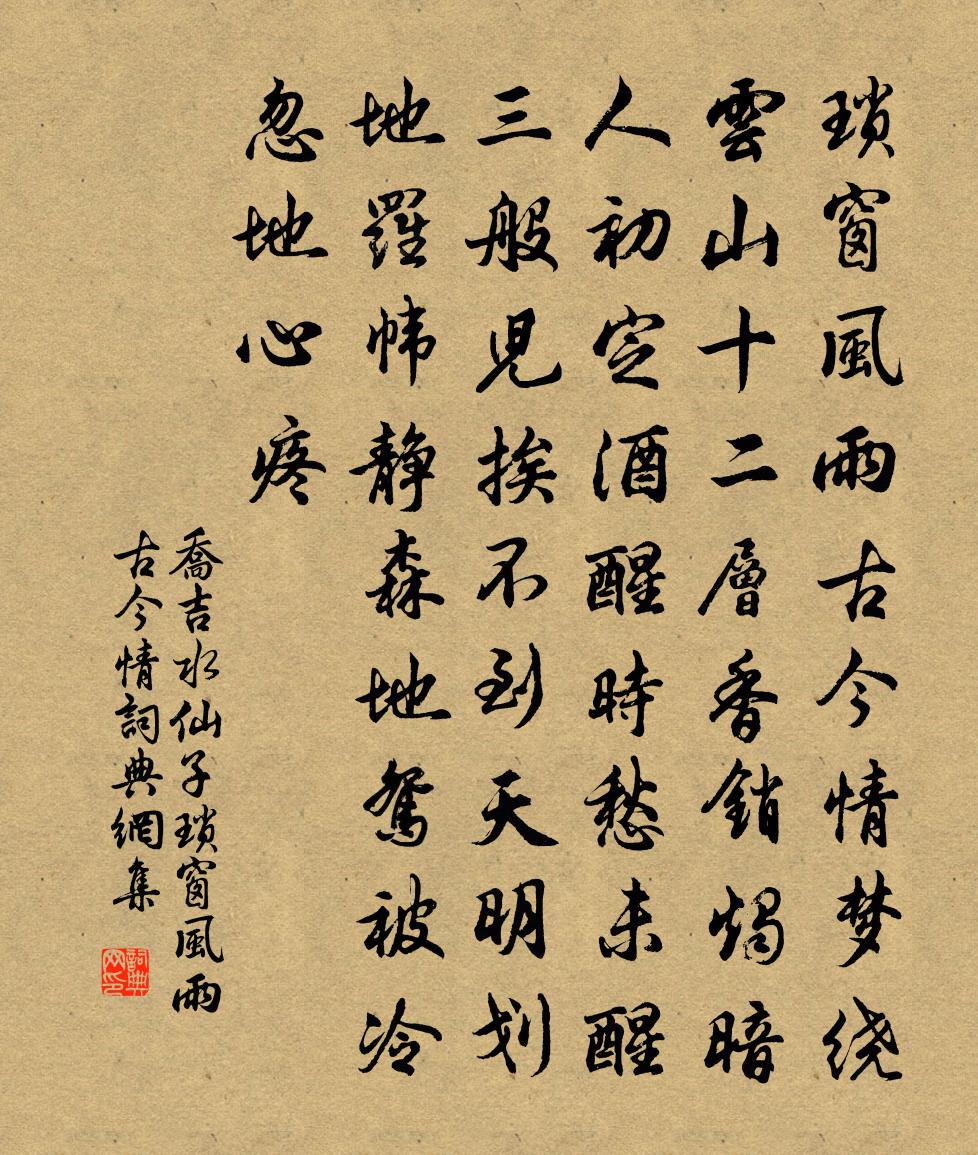 瑣窗風雨古今情梦绕
雲山十二層香銷燭暗
人初定酒醒時愁未醒
三般兒挨不到天明划
地羅帏静森地鴛被冷
忽地心疼
喬吉水仙子瑣窗風雨
古今情詞典網集
詞典
网印